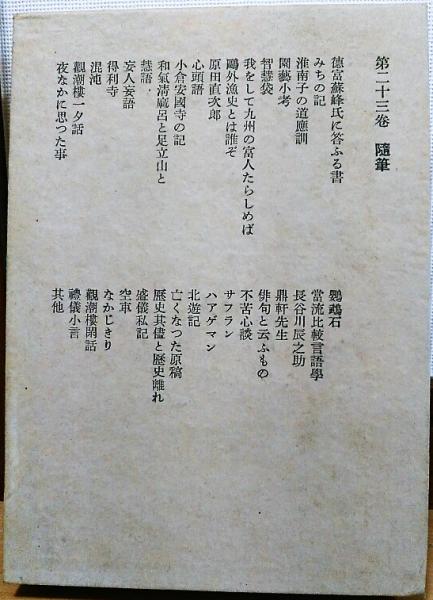 第二十三卷 隨筆
德富蘇峰氏に答ふる書
みちの記
淮南子の道應訓
園藝小考
智慧袋
我をして九州の富人たらしめば
鷗外漁史とは誰ぞ
原田直次郎
心頭語
小倉安國寺の記
和氣淸麻呂と足立山と
慧語
妄人妄語
得利寺
混沌
觀潮樓一夕話
夜なかに思つた事
鸚鵡石
當流比較言語學
長谷川辰之助
鼎軒先生
俳句と云ふもの
不苦心談
サフラン
ハアゲマン
北遊記
亡くなつた原稿
歷史其儘と歷史離れ
盛儀私記
空車
なかじきり
觀潮樓閑話
禮儀小言
其他